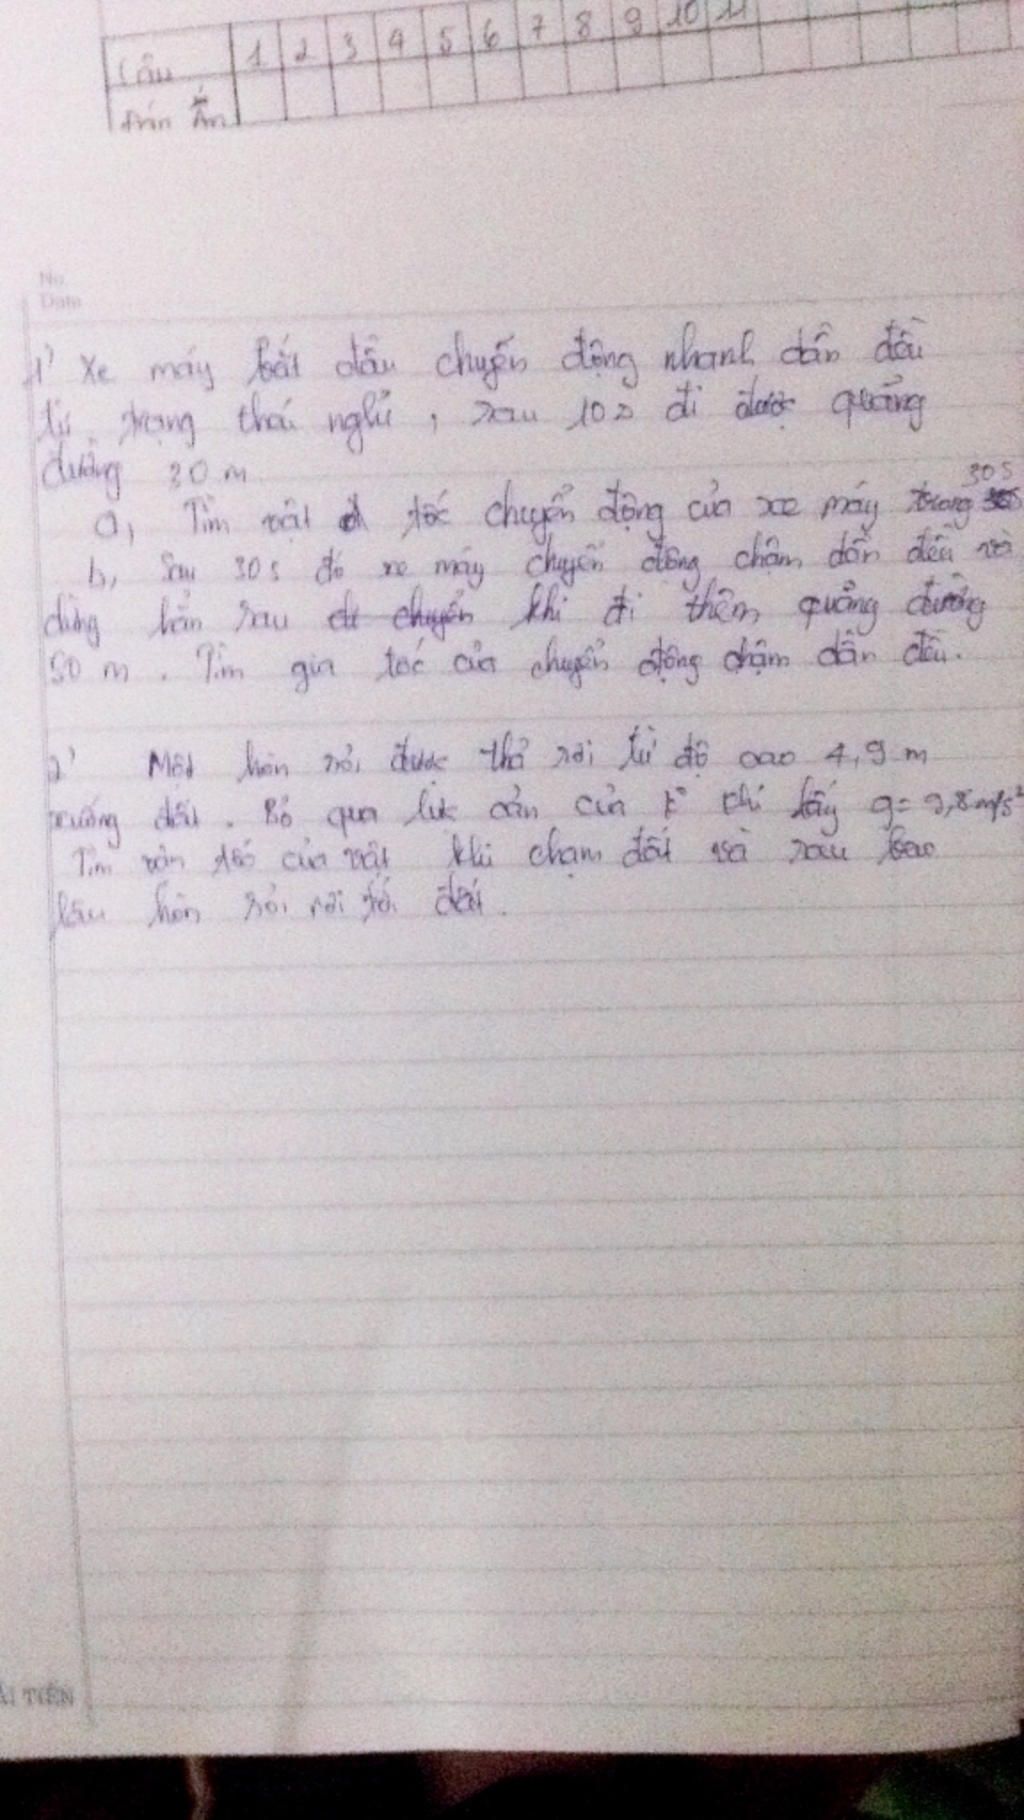 Câu 1 2 3 4 5 6 7 8 9 10 11
Đán Án
No.
Date
1' Xe máy bắt đầu chuyển động nhanh dần đều
từ trạng thái nghỉ, sau 10s đi được quảng
đường 30 m
30s
a, Tìm vật tốc chuyển động của xe máy trong
b, Sau 30s đó xe máy chuyển động chậm dần đều và
dừng hẳn sau khi đi thêm quảng đường
50 m. Tìm gia tốc của chuyển động chậm dần đều.
2' Một hòn sỏi được thả rơi từ độ cao 4,9 m
xuống đất. Bỏ qua lực cản của k² khí lấy g = 9,8 m/s²
Tìm vận tốc của vật khi chạm đất và sau bao
lâu hòn sỏi rơi tới đất.
ẢI TIẾN